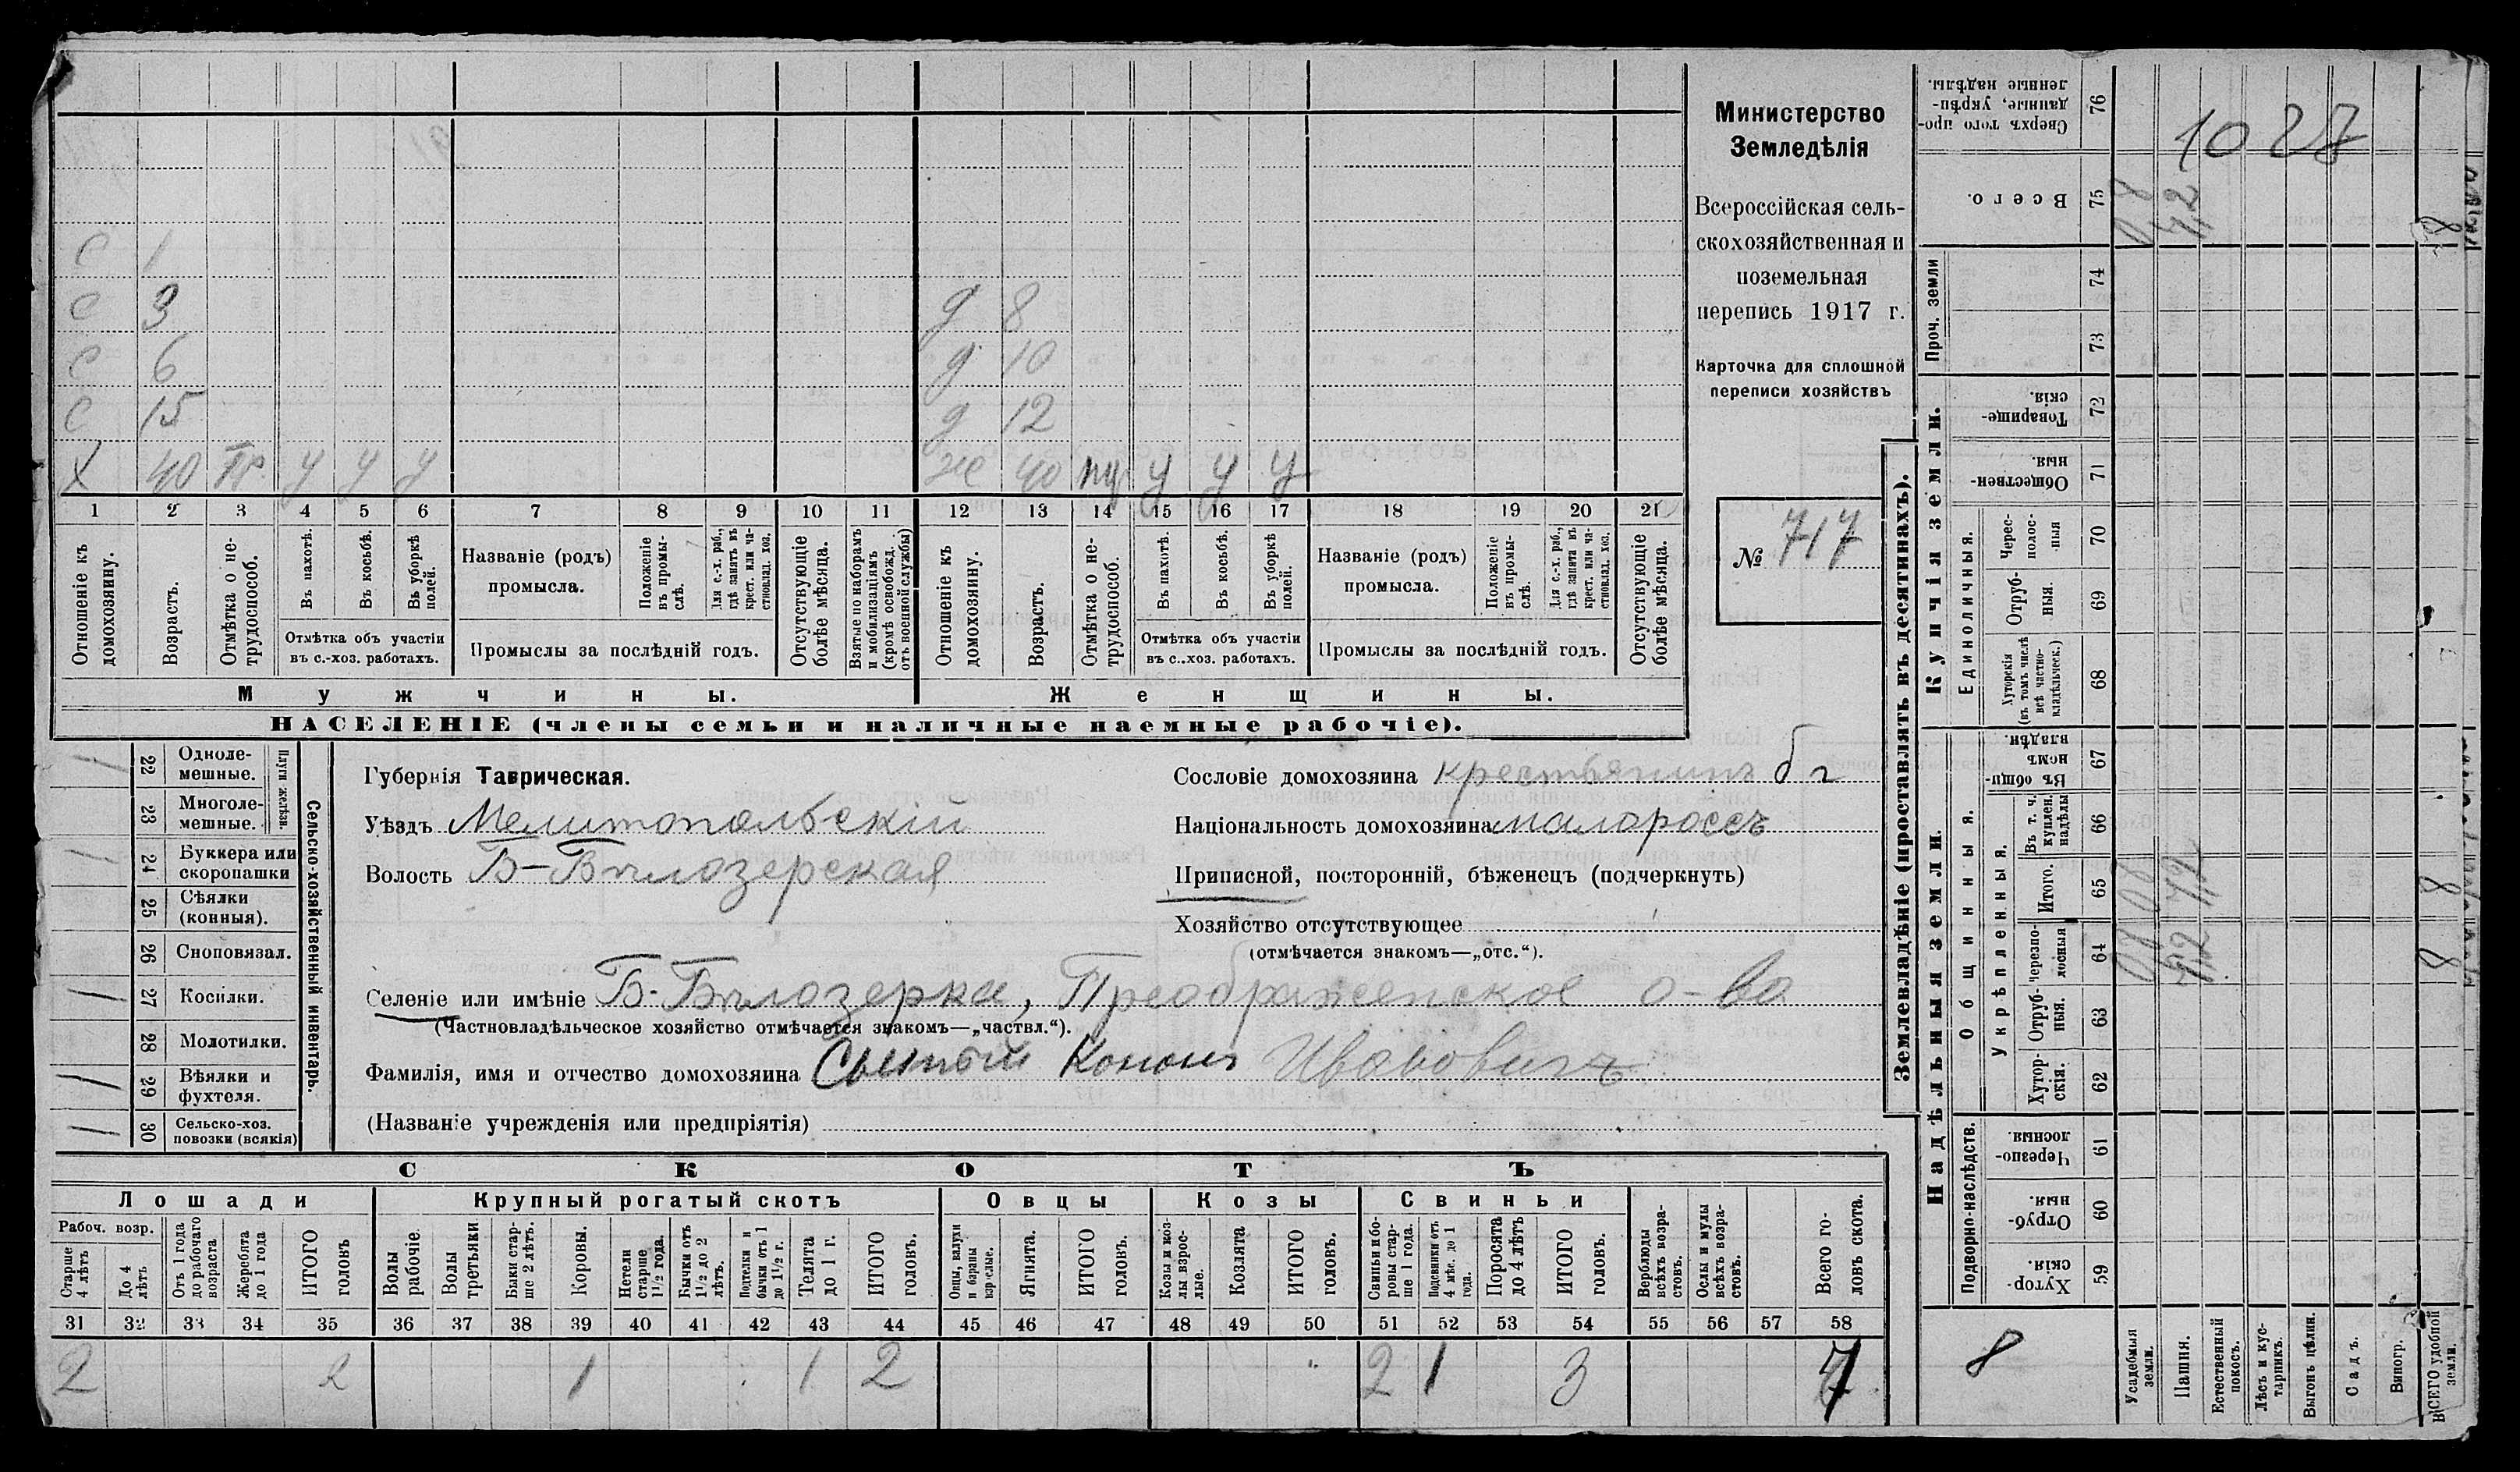 Министерство
Земледѣлія
Всероссійская сель-
скохозяйственная и
поземельная
перепись 1917 г.
Карточка для сплошной
переписи хозяйствъ
№ 717
С 1
С 3 д 8
С 6 д 10
С 15 д 12
Х 40 Гр. у у у ж 40 у у у
1 2 3 4 5 6 7 8 9 10 11 12 13 14 15 16 17 18 19 20 21
Отношеніе къ домохозяину.
Возрастъ.
Отмѣтка о не-трудоспособ.
Въ пахотѣ.
Въ косьбѣ.
Въ уборкѣ полей.
Отмѣтка объ участіи
въ с.-хоз. работахъ.
Названіе (родъ)
промысла.
Положеніе въ промы-слѣ.
Для с.-х. раб., гдѣ занятъ въ крест. или ча-стновлад. хоз.
Промыслы за послѣдній годъ.
Отсутствующіе болѣе мѣсяца.
Взятые по наборамъ и мобилизаціямъ (кромѣ освобожд. отъ военной службы)
Отношеніе къ домохозяину.
Возрастъ.
Отмѣтка о не-трудоспособ.
Въ пахотѣ.
Въ косьбѣ.
Въ уборкѣ полей.
Отмѣтка объ участіи
въ с..хоз. работахъ.
Названіе (родъ)
промысла.
Положеніе въ промы-слѣ.
Для с.-х. раб., гдѣ занята въ крест. или ча-стновлад. хоз.
Промыслы за послѣдній годъ.
Отсутствующіе болѣе мѣсяца.
Мужчины. Женщины.
НАСЕЛЕНІЕ (члены семьи и наличные наемные рабочіе).
Сельско-хозяйственный инвентарь.
Плуги желѣзн.
/ 22 Одноле-мешные.
23 Многоле-мешные.
/ 24 Буккера или скоропашки
25 Сѣялки (конныя).
26 Сноповязал.
/ 27 Косилки.
28 Молотилки.
/ 29 Вѣялки и фухтеля.
/ 30 Сельско-хоз. повозки (всякія)
Губернія Таврическая.
Уѣздъ Мелитопольскій
Волость Б-Бѣлозерская
Сословіе домохозяина крестьянинъ б г
Національность домохозяина малороссъ
Приписной, посторонній, бѣженецъ (подчеркнуть)
Хозяйство отсутствующее
(отмѣчается знакомъ—„отс.“).
Селеніе или имѣніе Б-Бѣлозерка, Преображенское о-во
(Частновладѣльческое хозяйство отмѣчается знакомъ—„частвл.“).
Фамилія, имя и отчество домохозяина Кононъ Ивановичъ
(Названіе учрежденія или предпріятія)
СКОТЪ
Лошади Крупный рогатый скотъ Овцы Козы Свиньи
Рабоч. возр.
Старше 4 лѣтъ
До 4 лѣтъ
Отъ 1 года до рабочаго возраста
Жеребята до 1 года
ИТОГО головъ
Волы рабочіе.
Волы третьяки.
Быки стар-ше 2 лѣтъ.
Коровы.
Нетели старше 1½ года.
Бычки отъ 1½ до 2 лѣтъ.
Подтелки и бычки отъ 1 до 1½ г.
Телята до 1 г.
ИТОГО головъ.
Овцы, валухи и бараны взрослые.
Ягнята.
ИТОГО головъ.
Козы и коз-лы взрос-лые.
Козлята
ИТОГО головъ.
Свиньи и бо-ровы стар-ше 1 года.
Подсвинки отъ 4 мѣс. до 1 года.
Поросята до 4 лѣтъ
ИТОГО головъ.
Верблюды всѣхъ возра-стовъ.
Ослы и мулы всѣхъ возра-стовъ.
Всего го-ловъ скота.
31 32 33 34 35 36 37 38 39 40 41 42 43 44 45 46 47 48 49 50 51 52 53 54 55 56 57 58
2 2 1 1 2 2 1 3 7
Землевладѣніе (проставлять въ десятинахъ).
Сверхъ того про-данные, укрѣп-ленные надѣлы. 76
1027
Всего. 75
Проч. земли 74 73
Купчія земли.
Товарище-скія. 72
Обществен-ныя. 71
Единоличныя.
Черес-полос-ныя 70
Отруб-ныя. 69
Хуторскія (въ томъ числѣ всѣ частно-владѣльческ.) 68
Надѣльныя земли.
Общинныя.
Въ общин-номъ владѣн. 67
Укрѣпленныя.
Въ т. ч. куплен. надѣлы 66
Итого. 65
черезпо-лосныя 64
Отруб-ныя. 63
Хутор-скія. 62
Подворно-наслѣдств.
Черезпо-лосныя. 61
Отруб-ныя. 60
Хутор-скія. 59
8
Усадебныя земли.
Пашня.
Естественный покосъ.
Лѣсъ и кус-тарникъ.
Выгонъ цѣлин.
Садъ.
Виногр.
ВСЕГО удобной земли.
8
8
8